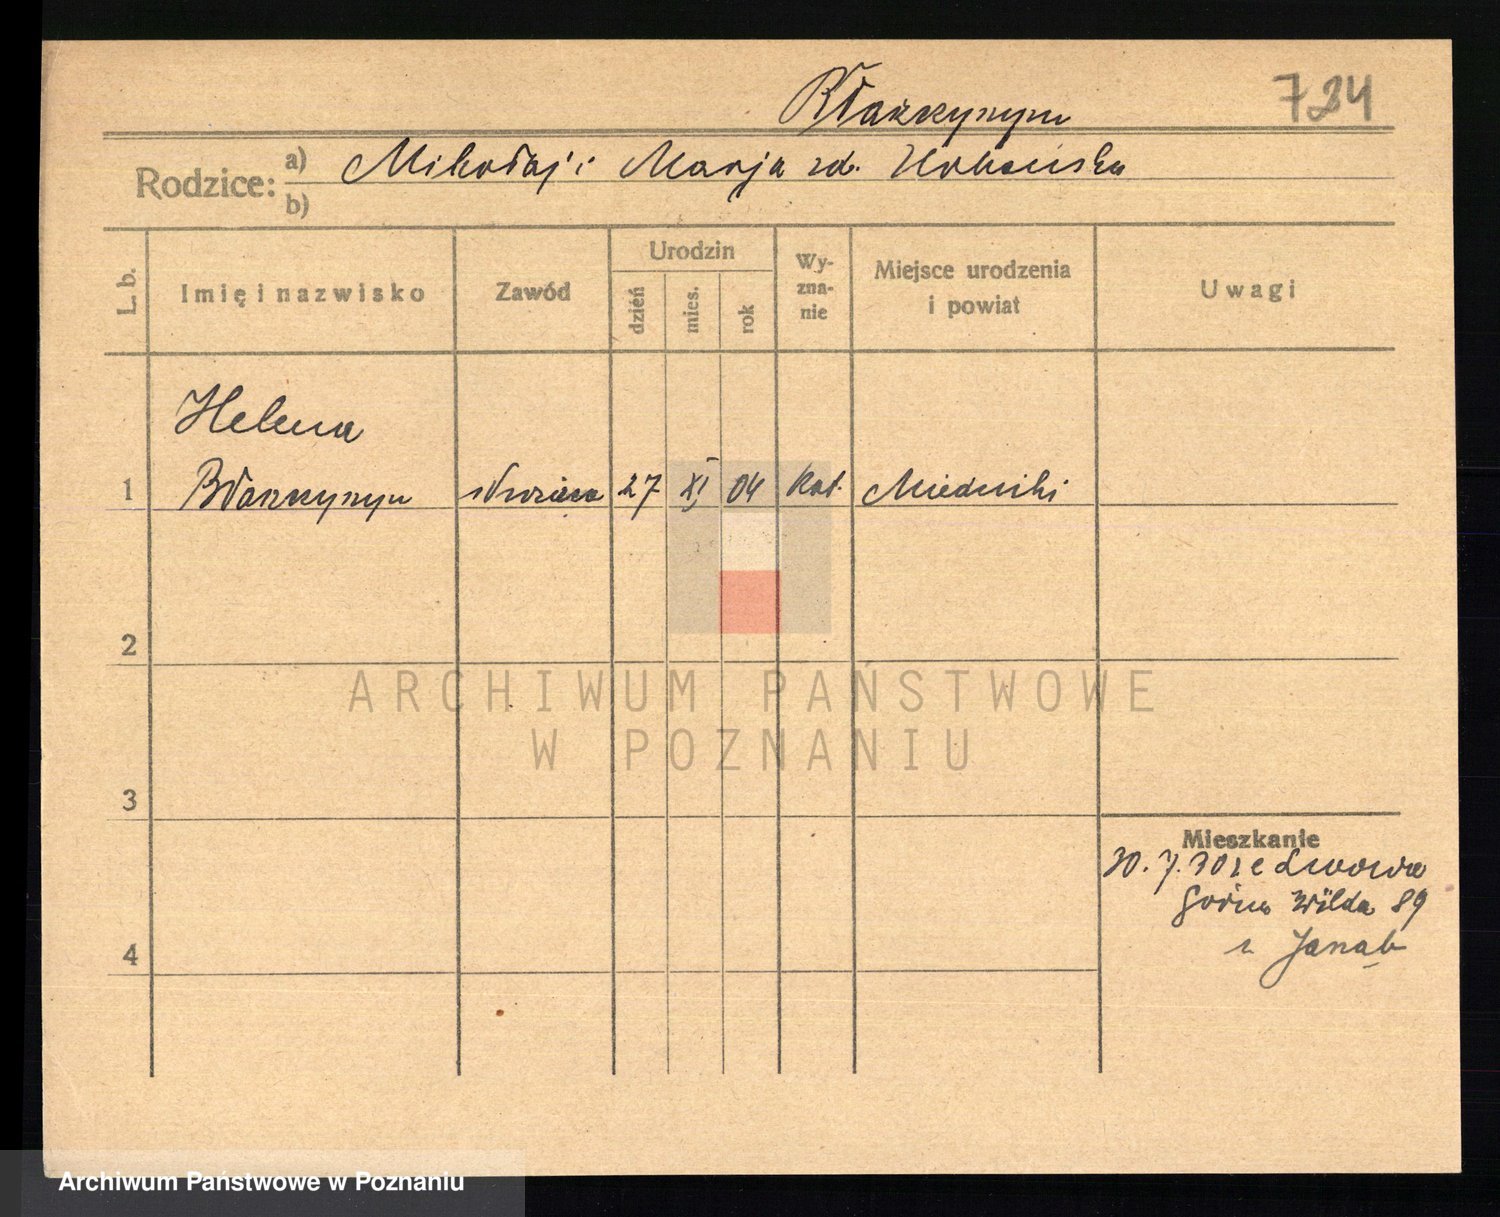 Błaszczyszyn
724
Rodzice: a) Mikołaj i Marja zd.
b)
L. b.
Imię i nazwisko
Zawód
Urodzin
dzień
mies.
rok
Wy-
zna-
nie
Miejsce urodzenia
i powiat
Uwagi
Helena
1 27 XI 04 kat. Miedniki
2
ARCHIWUM PAŃSTWOWE
W POZNANIU
3
Mieszkanie
30.7.30 ze Lwowa
Górna Wilda 89
4
Archiwum Państwowe w Poznaniu